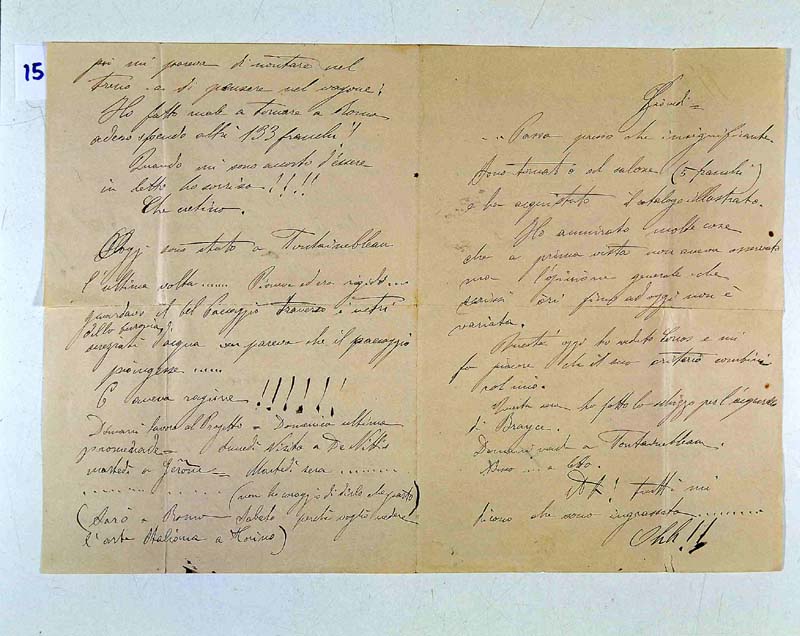 15
poi mi pareva di montare nel
treno e di pensare nel vagone;
Ho fatto male a tornare a Roma
adesso spendo altri 133 franchi!
Quando mi sono accorto d'essere
in letto ho sorriso!!!!
Che cretino.
Oggi sono stato a Fontainebleau
l'ultima volta...... Pioveva ed era rigido....
guardavo il bel Paesaggio traverso i vetri
dello
d'acqua mi pareva che il paesaggio
piangesse......
E aveva ragione!!!!!!!
Domani lavoro al Progetto - Domenica ultima
promenade - Lunedì Visita a De Nittis
martedì a Jerôme - Martedì sera .........
......... (non ho coraggio di dirlo che parto)
(Sarò a Roma Sabato perchè voglio vedere
l'arte Italiana a Torino)
Giovedì =
... Passa presso che insignificante.
Sono tornato al salone (5 franchi)
e ho acquistato il catalogo illustrato.
Ho ammirato molte cose
che a prima vista non aveva osservato
ma l'opinione generale che
scrissi fino ad oggi non è
variata.
oggi ho veduto e mi
fa piacere che il suo criterio combini
col mio.
Questa sera ho fatto lo schizzo per l'
di
Domani vado a Fontainebleau.
Ah! tutti mi
dicono che sono ingrassato .........
Ohh!!